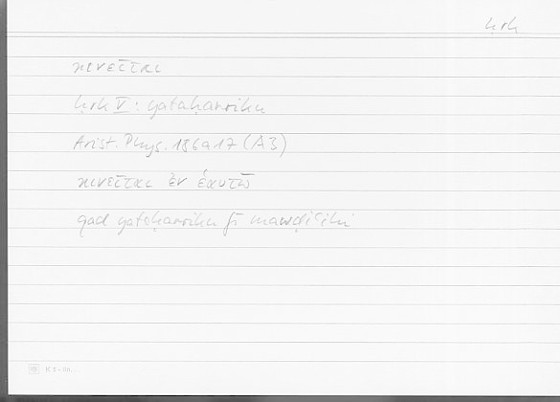 ḥrk
κινεῖται
ḥrk V: yataḥarriku
Arist. Phys. 186a17 (A3)
κινεῖται ἐν ἑαυτῷ
qad yataḥarriku fī mawḍiʿihi